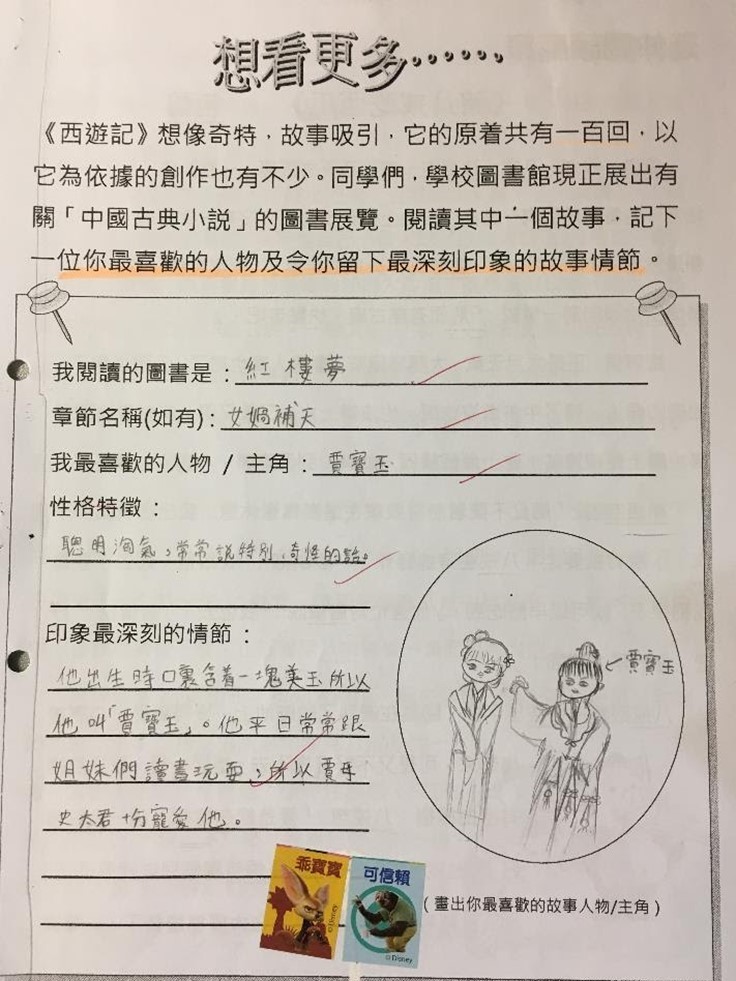 想看更多……
《西遊記》想像奇特，故事吸引，它的原着共有一百回，以
它為依據的創作也有不少。同學們，學校圖書館現正展出有
關「中國古典小說」的圖書展覽。閱讀其中一個故事，記下
一位你最喜歡的人物及令你留下最深刻印象的故事情節。
我閱讀的圖書是：紅樓夢
章節名稱(如有)：女媧補天
我最喜歡的人物 / 主角：賈寶玉
性格特徵：
聰明淘氣，常常說特別，奇怪的話。
印象最深刻的情節：
他出生時口裏含着一塊美玉所以
他叫「賈寶玉」。他平日常常跟
姐妹們讀書玩耍，所以賈母
史太君十分寵愛他。
賈寶玉
乖寶寶
可信賴
©Disney
©Disney
（畫出你最喜歡的故事人物/主角）